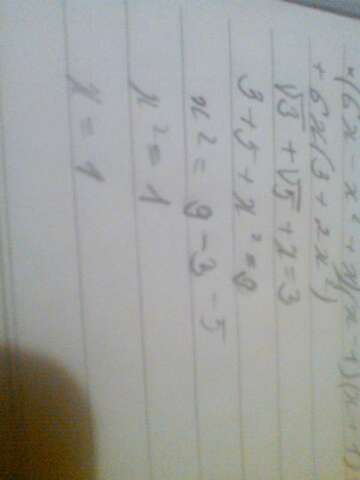 -(6x - x² + x)(x - 1)(x + 1)
+ 6x(3 + 2x)
√3 + √5 + x = 3
3 + 5 + x² = 9
x² = 9 - 3 - 5
x² = 1
x = 1